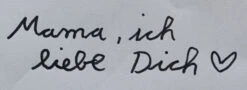 Mama, ich
liebe Dich ♡